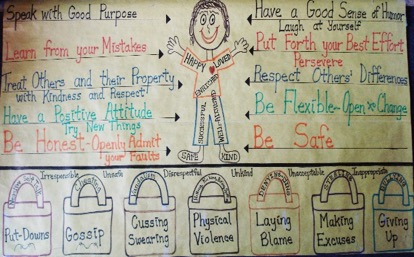 Speak with Good Purpose
Learn from your Mistakes
Treat Others and their Property
with Kindness and Respect
Have a Positive Attitude
Try New Things
Be Honest-Openly Admit
your Faults
Have a Good Sense of Humor
Laugh at Yourself
Put Forth your Best Effort
Persevere
Respect Others' Differences
Be Flexible-Open to Change
Be Safe
HAPPY
LOVED
SUCCESSFUL
SAFE
KIND
Irresponsible
Unsafe
Disrespectful
Unkind
Unacceptable
Inappropriate
Put-Downs
Gossip
Cussing
Swearing
Physical
Violence
Laying
Blame
Making
Excuses
Giving
Up